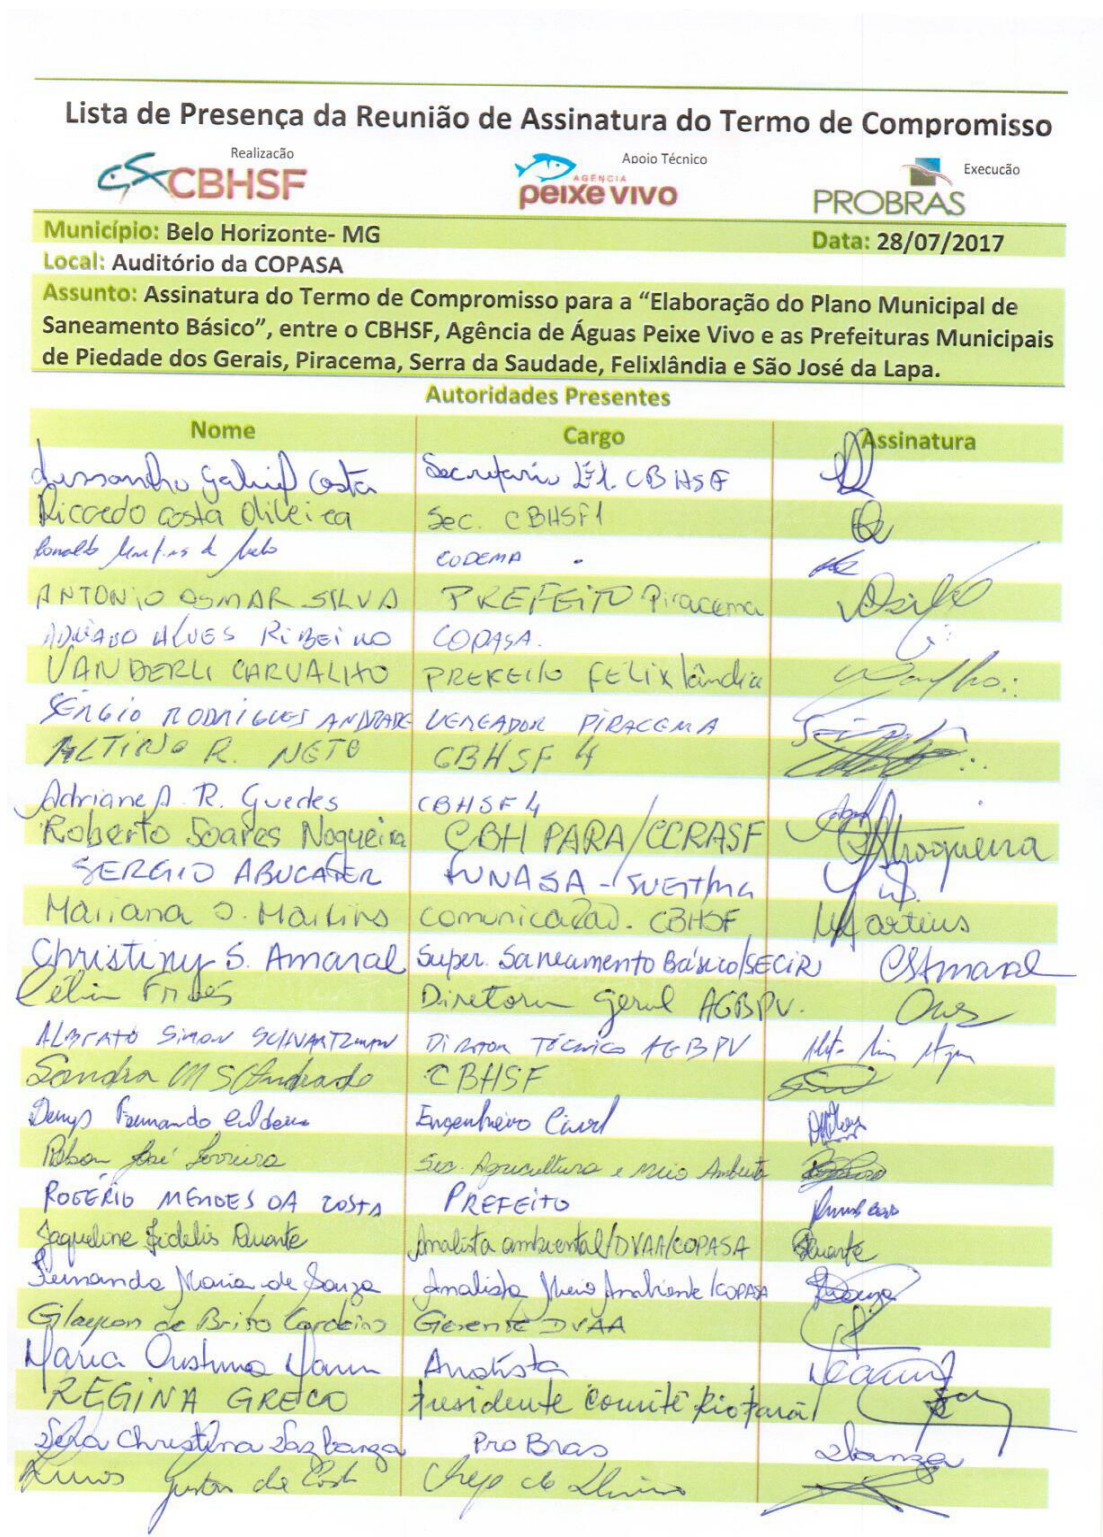 Lista de Presença da Reunião de Assinatura do Termo de Compromisso
Realização
CBHSF
Apoio Técnico
AGÊNCIA
peixe vivo
Execução
PROBRAS
Município: Belo Horizonte- MG
Data: 28/07/2017
Local: Auditório da COPASA
Assunto: Assinatura do Termo de Compromisso para a “Elaboração do Plano Municipal de
Saneamento Básico”, entre o CBHSF, Agência de Águas Peixe Vivo e as Prefeituras Municipais
de Piedade dos Gerais, Piracema, Serra da Saudade, Felixlândia e São José da Lapa.
Autoridades Presentes
Nome Cargo Assinatura
Costa CBHSF
Ricardo Costa Oliveira Sec. CBHSF1
Ronaldo CODEMA
ANTONIO OSMAR SILVA PREFEITO Piracema
ALVES RIBEIRO COPASA.
VANDERLI CARVALHO PREFEITO FELIXlândia
SÉRGIO RODRIGUES ANDRADE VEREADOR PIRACEMA
ALTINO R. NETO CBHSF 4
Adriane A. R. Guedes CBHSF 4
Roberto Soares Nogueira CBH PARA/CCRASF
SERGIO ABUCATER FUNASA -
Mariana S. Martins comunicação. CBHSF Martins
Christiny S. Amaral Super. Saneamento Básico/SECIR CSAmaral
Célia Fróes Diretora geral AGBPV.
ALBERTO SIMON SCHVARTZMAN DIRETOR TÉCNICO AGBPV
Sandra CBHSF
Denys Fernando Engenheiro Civil
José Ferreira Sec. Agricultura e Meio Ambiente
ROGÉRIO MENDES DA COSTA PREFEITO
Jaqueline Fidelis Duarte Analista ambiental/DVAA/COPASA Duarte
Fernanda Maria de Souza Analista Meio Ambiente/COPASA Souza
de Brito Cordeiro Gerente DVAA
Maria Analista
REGINA GRECO Presidente Comitê Rio Pará
Christina ProBras
de